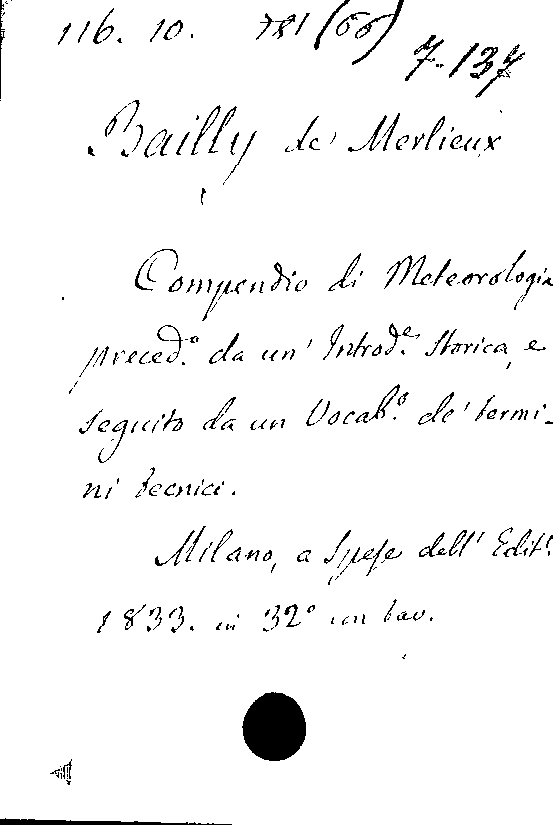 116. 10. 781 (66)
7-137
Bailly de' Merlieux
Compendio di Meteorologia
preced.º da un' Introd.e Storica, e
seguito da un Vocab.º de' termi-
ni tecnici.
Milano, a Spese dell' Edit.
1833. in 32º con tav.